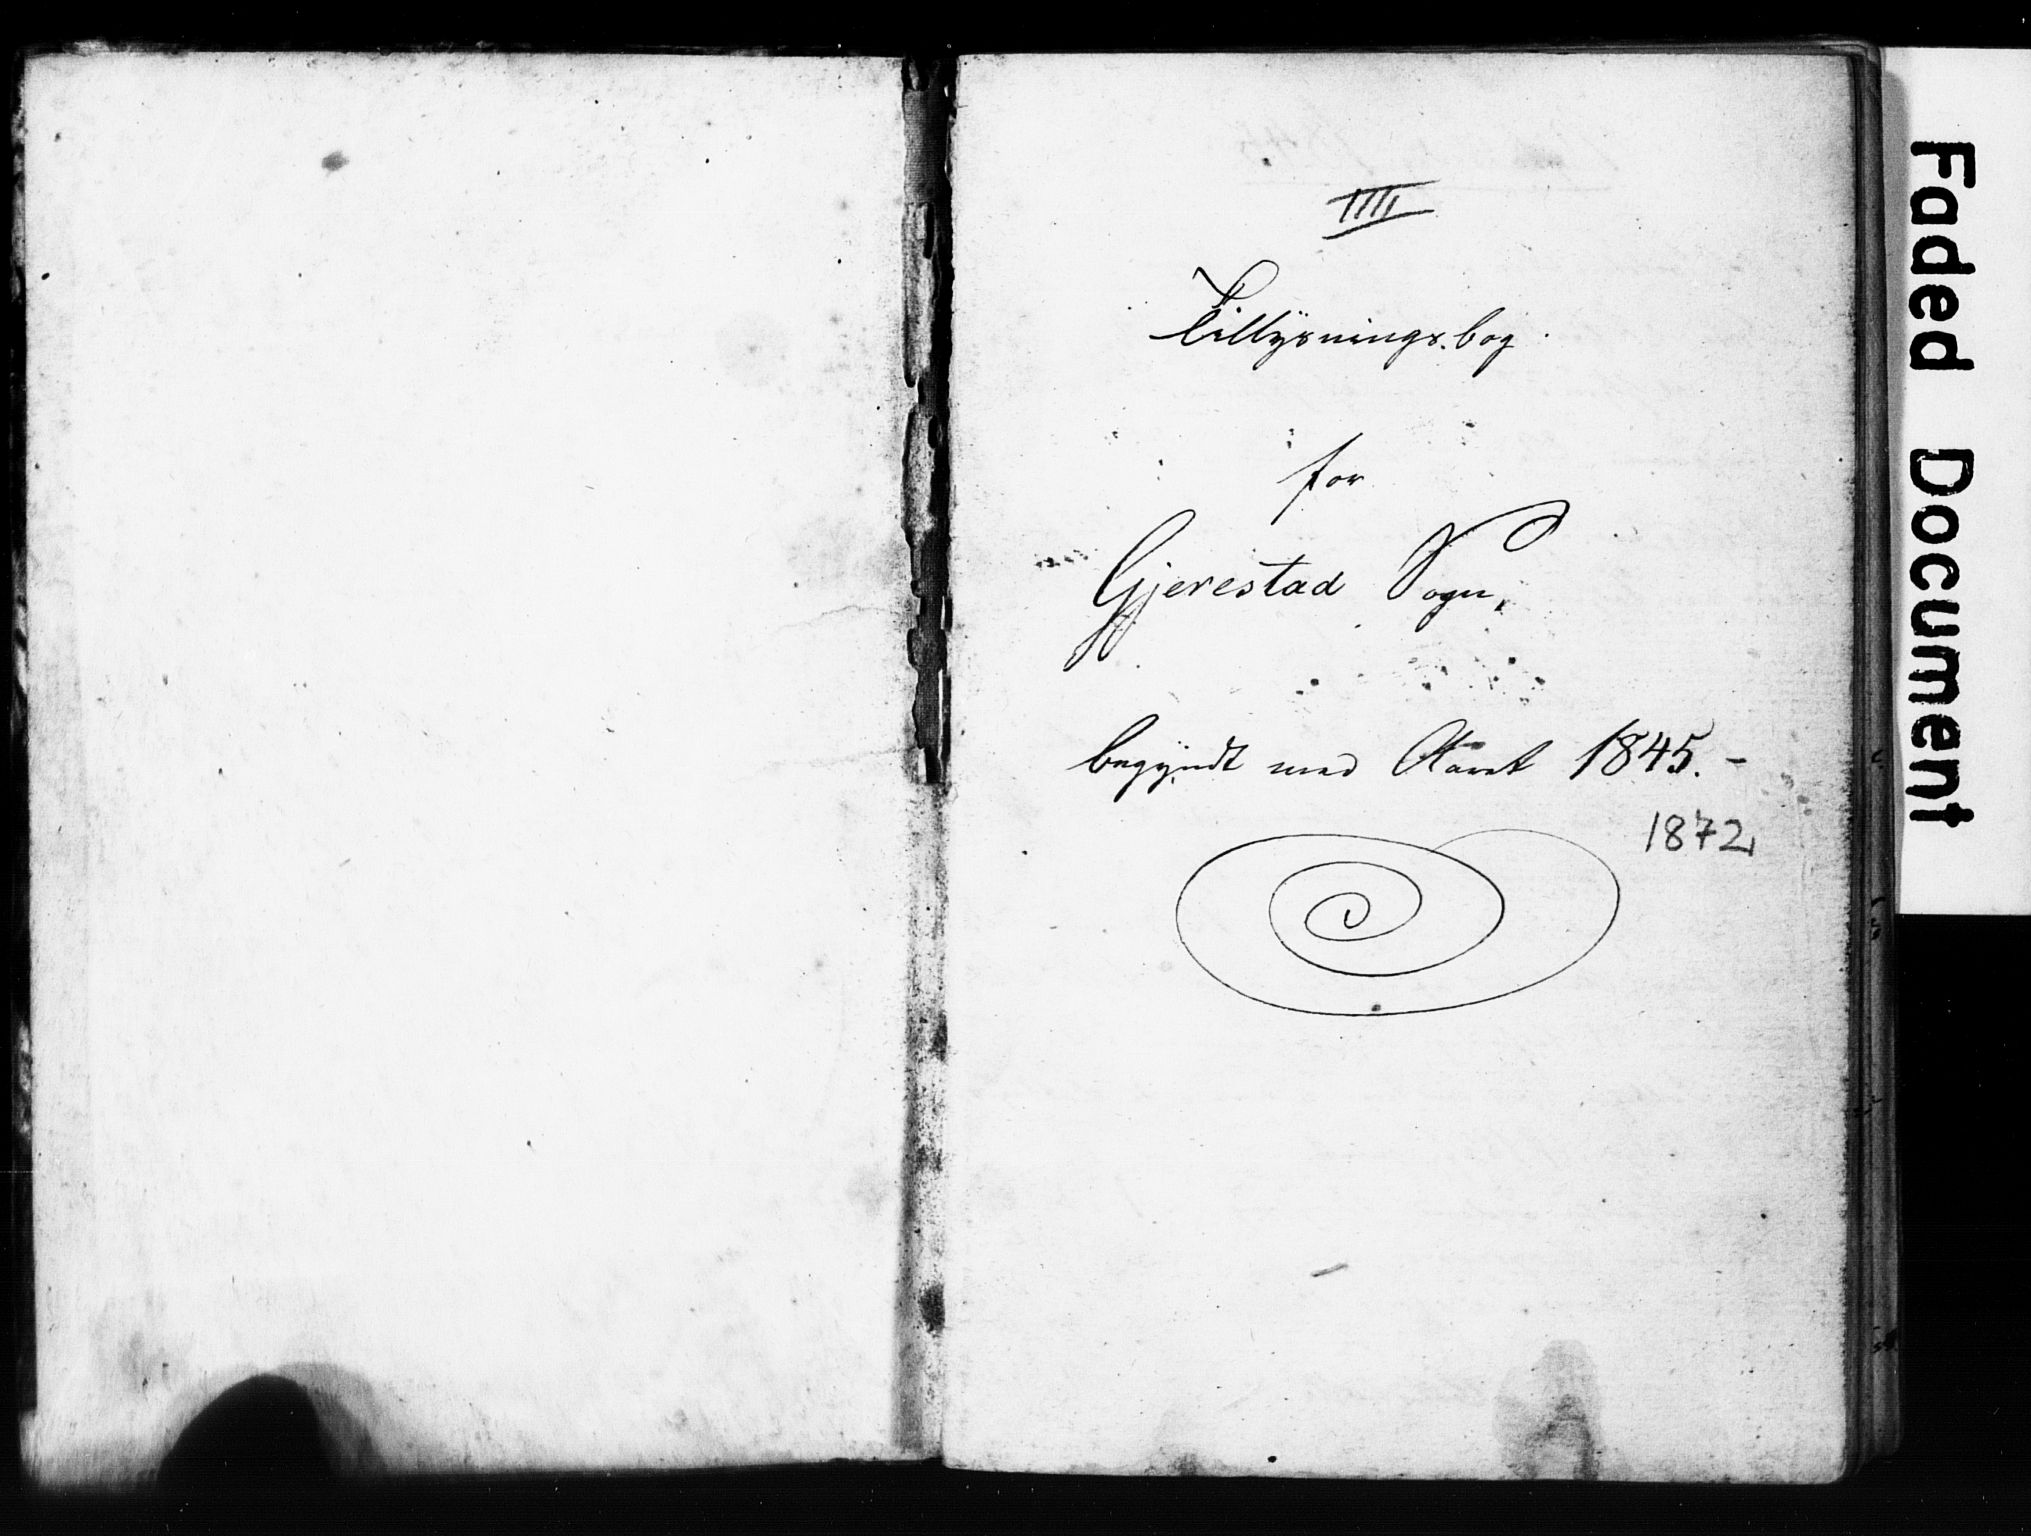 IIII
Tillysnings.bog.
for
Gjerestad Sogn,
begyndt med Aaret 1845. -
1872,
Faded Document